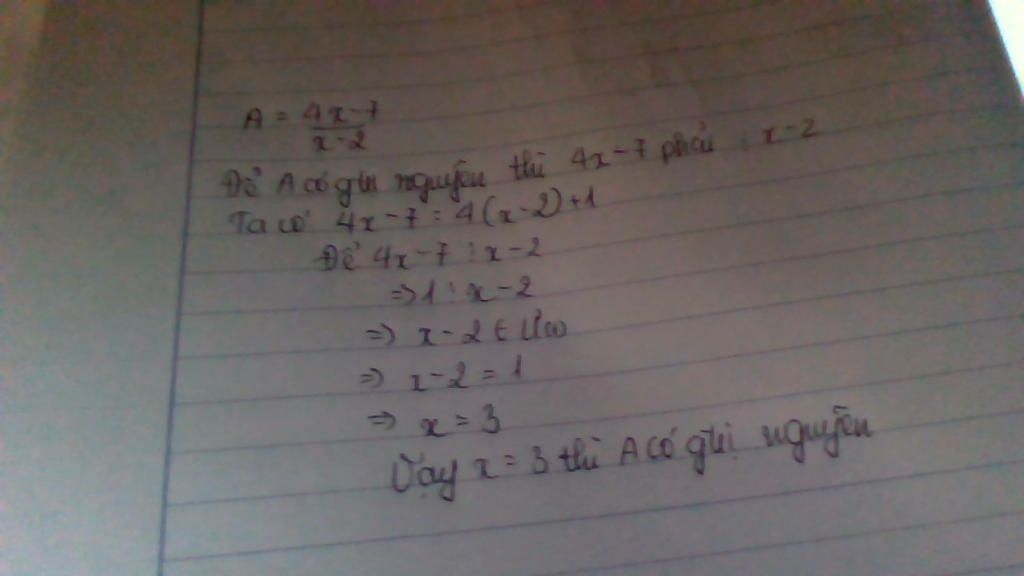 A = \frac{4x-7}{x-2}
Để A có gtrị nguyên thì 4x-7 phải ⋮ x-2
Ta có 4x-7 = 4(x-2)+1
Để 4x-7 ⋮ x-2
=> 1 ⋮ x-2
=> x-2 ∈ Ư(1)
=> x-2 = 1
=> x = 3
Vậy x = 3 thì A có gtrị nguyên